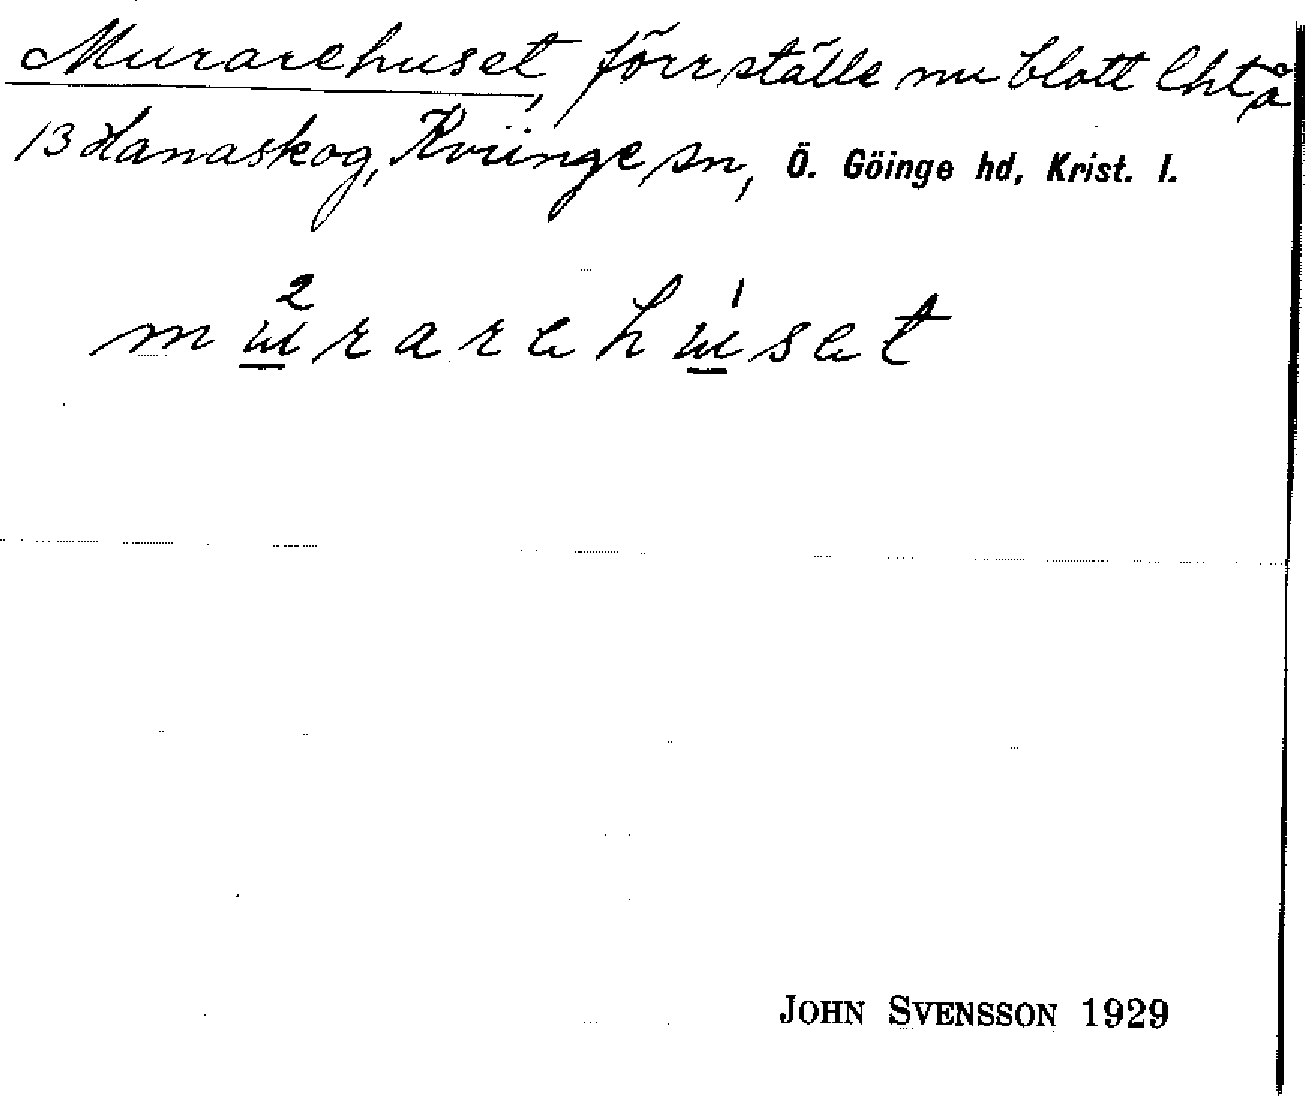 Murarehuset, förr ställe nu blott lht å
13 Hanaskog, Kviinge sn, Ö. Göinge hd, Krist. l.
murarehuset
JOHN SVENSSON 1929